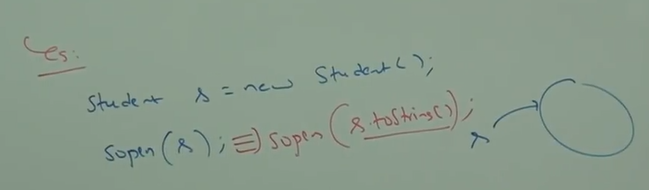 es:
Student s = new Student();
sopln(s); ≡) sopln(s.toString());
s